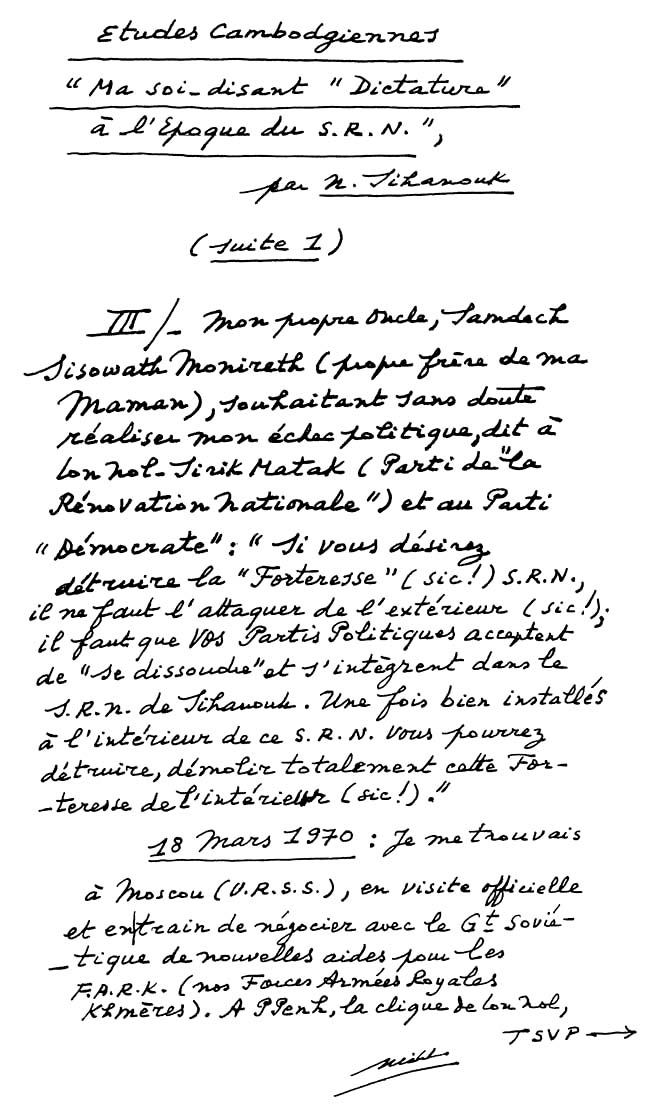 Etudes Cambodgiennes
"Ma soi-disant "Dictature"
à l'Epoque du S.R.N.",
par N. Sihanouk
(suite 1)
III/- Mon propre Oncle, Samdech
Sisowath Monireth (propre frère de ma
Maman), souhaitant sans doute
réaliser mon échec politique, dit à
Lon Nol-Sirik Matak (Parti de "la
Rénovation Nationale") et au Parti
"Démocrate" : "Si vous désirez
détruire la "Forteresse" (sic!) S.R.N.,
il ne faut l'attaquer de l'extérieur (sic!);
il faut que vos Partis Politiques acceptent
de "se dissoudre" et s'intègrent dans le
S.R.N. de Sihanouk. Une fois bien installés
à l'intérieur de ce S.R.N. vous pourrez
détruire, démolir totalement cette For-
-teresse de l'intérieur (sic!)."
18 Mars 1970 : Je me trouvais
à Moscou (U.R.S.S.), en visite officielle
et en train de négocier avec le Gt Sovié-
-tique de nouvelles aides pour les
F.A.R.K. (nos Forces Armées Royales
Khmères). A PPenh, la clique de Lon Nol,
TSVP →